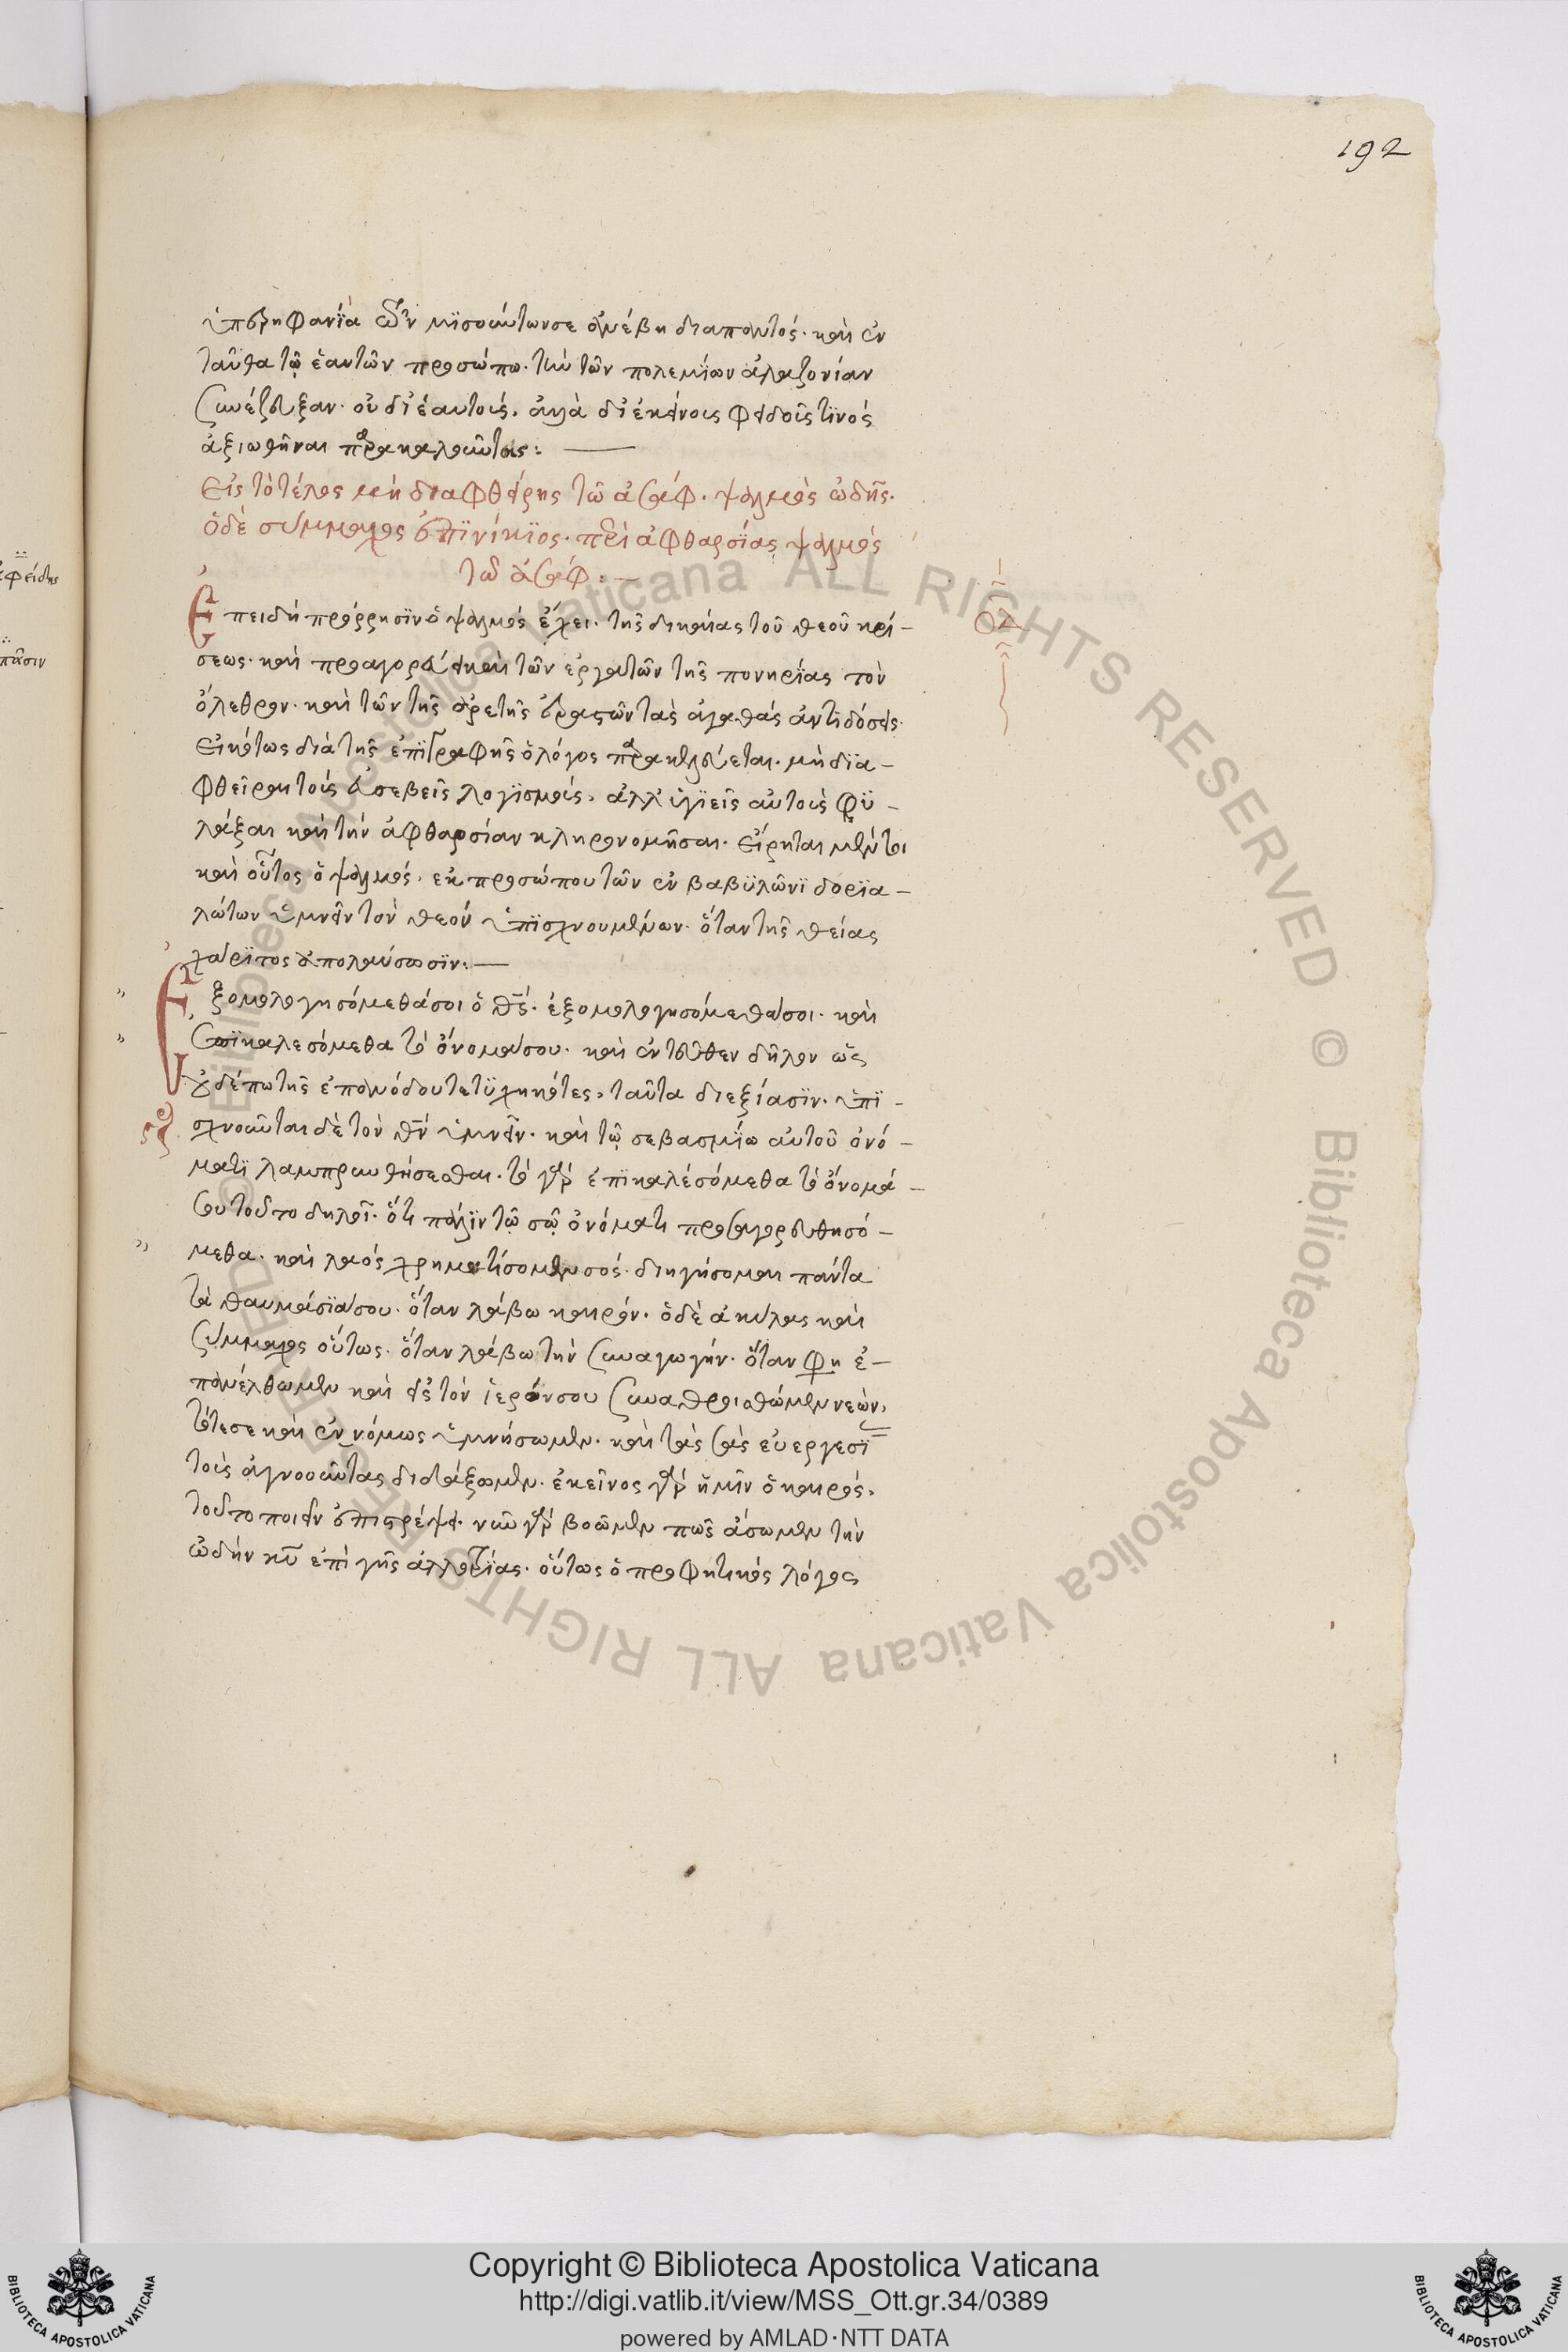 192
ὑπερηφανΐα τῶν μϊσούντων σε ἀνέβη διαπαντός. καὶ ἐν
ταῦθα τῷ ἑαυτῶν προσώπω. τὴν τῶν πολεμίων ἀλαζονίαν
συνέζευξαν. οὐ δι' ἑαυτοὺς, ἀλλὰ δι' ἐκείνους φειδοῦς τϊνὸς
ἀξιωθῆναι παρακαλοῦντες:
Εἰς τὸ τέλος μὴ διαφθείρης τῶ ἀσάφ. ψαλμὸς ὠδῆς.
ὁ δὲ σύμμαχος ἐπϊνίκϊος. περὶ ἀφθαρσίας ψαλμὸς
τῶ ἀσάφ:
Ἐπειδὴ πρόρρησϊν ὁ ψαλμὸς ἔχει. τῆς δικαίας τοῦ θεοῦ κρί-
οδ
σεως. καὶ προαγορεύει καὶ τῶν ἐργατῶν τῆς πονηρΐας τὸν
ὄλεθρον. καὶ τῶν τῆς ἀρετῆς ἐραστῶν τὰς ἀγαθὰς ἀντιδόσεις.
εἰκότως διὰ τῆς ἐπϊγραφῆς ὁ λόγος παρακελεύεται. μὴ δϊα-
φθεῖραι τοὺς εὐσεβεῖς λογϊσμοὺς, ἀλλ' ὑγϊεῖς αὐτοὺς φϋ-
λάξαι καὶ τὴν ἀφθαρσίαν κληρονομῆσαι. εἴρηται μέντοι
καὶ οὗτος ὁ ψαλμὸς, ἐκ προσώπου τῶν ἐν βαβϋλῶνϊ δορϊα-
λώτων ὑμνεῖν τὸν θεὸν ὑπϊσχνουμένων. ὅταν τῆς θείας
χάρϊτος ἀπολαύσωσϊν:
Ἐξομολογησόμεθά σοι ὁ θς. ἐξομολογησόμεθά σοι. καὶ
ἐπϊκαλεσόμεθα τὸ ὄνομά σου. καὶ ἐντεῦθεν δῆλον ὡς
οὐδέπω τῆς ἐπανόδου τετϋχηκότες, ταῦτα διεξίασϊν. ὑπϊ-
σχνοῦνται δὲ τὸν θν ὑμνεῖν. καὶ τῷ σεβασμΐω αὐτοῦ ὀνό-
ματϊ λαμπρυνθήσεσθαι. τὸ γὰρ ἐπϊκαλέσόμεθα τὸ ὄνομά
σου τοῦτο δηλοῖ. ὅτι πάλϊν τῷ σῷ ὀνόματι προσαγορευθησό-
μεθα. καὶ λαὸς χρηματίσομεν σὸς. διηγήσομαι πάντα
τὰ θαυμάσϊά σου. ὅταν λάβω καιρόν. ὁ δὲ ἀκύλας καὶ
σύμμαχος οὕτως. ὅταν λάβω τὴν συναγωγήν. ὅταν φη ἐ-
πανέλθωμεν καὶ εἰς τὸν ἱερόν σου συναθροισθῶμεν νεὼν,
τότε σε καὶ ἐννόμως ὑμνήσωμεν. καὶ τὰς σὰς εὐεργεσϊ
τοὺς ἀγνοοῦντας διδάξωμεν. ἐκεῖνος γὰρ ἡμῖν ὁ καιρὸς,
τοῦτο ποιεῖν ἐπιτρέψει. νῦν γὰρ βοῶμεν πῶς ἄσωμεν τὴν
ὠδὴν κυ ἐπὶ γῆς ἀλλοτρΐας. οὕτως ὁ προφητικὸς λόγος
Copyright © Biblioteca Apostolica Vaticana
http://digi.vatlib.it/view/MSS_Ott.gr.34/0389
powered by AMLAD·NTT DATA